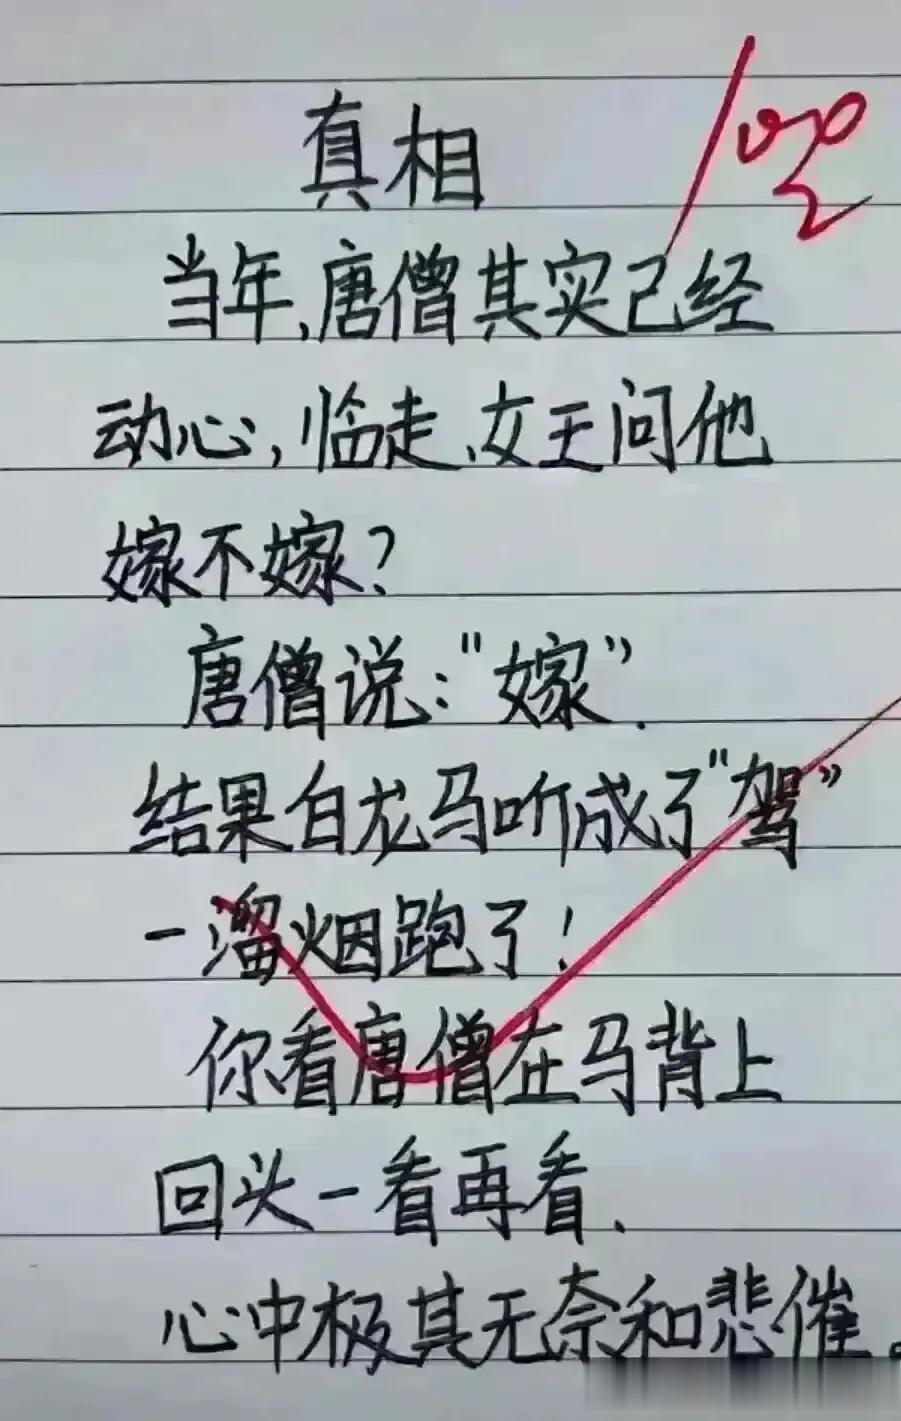 真相
100
当年,唐僧其实已经
动心,临走、女王问他
嫁不嫁?
唐僧说:“嫁”.
结果白龙马听成了“驾”
一溜烟跑了!
你看唐僧在马背上
回头一看再看.
心中极其无奈和悲催。